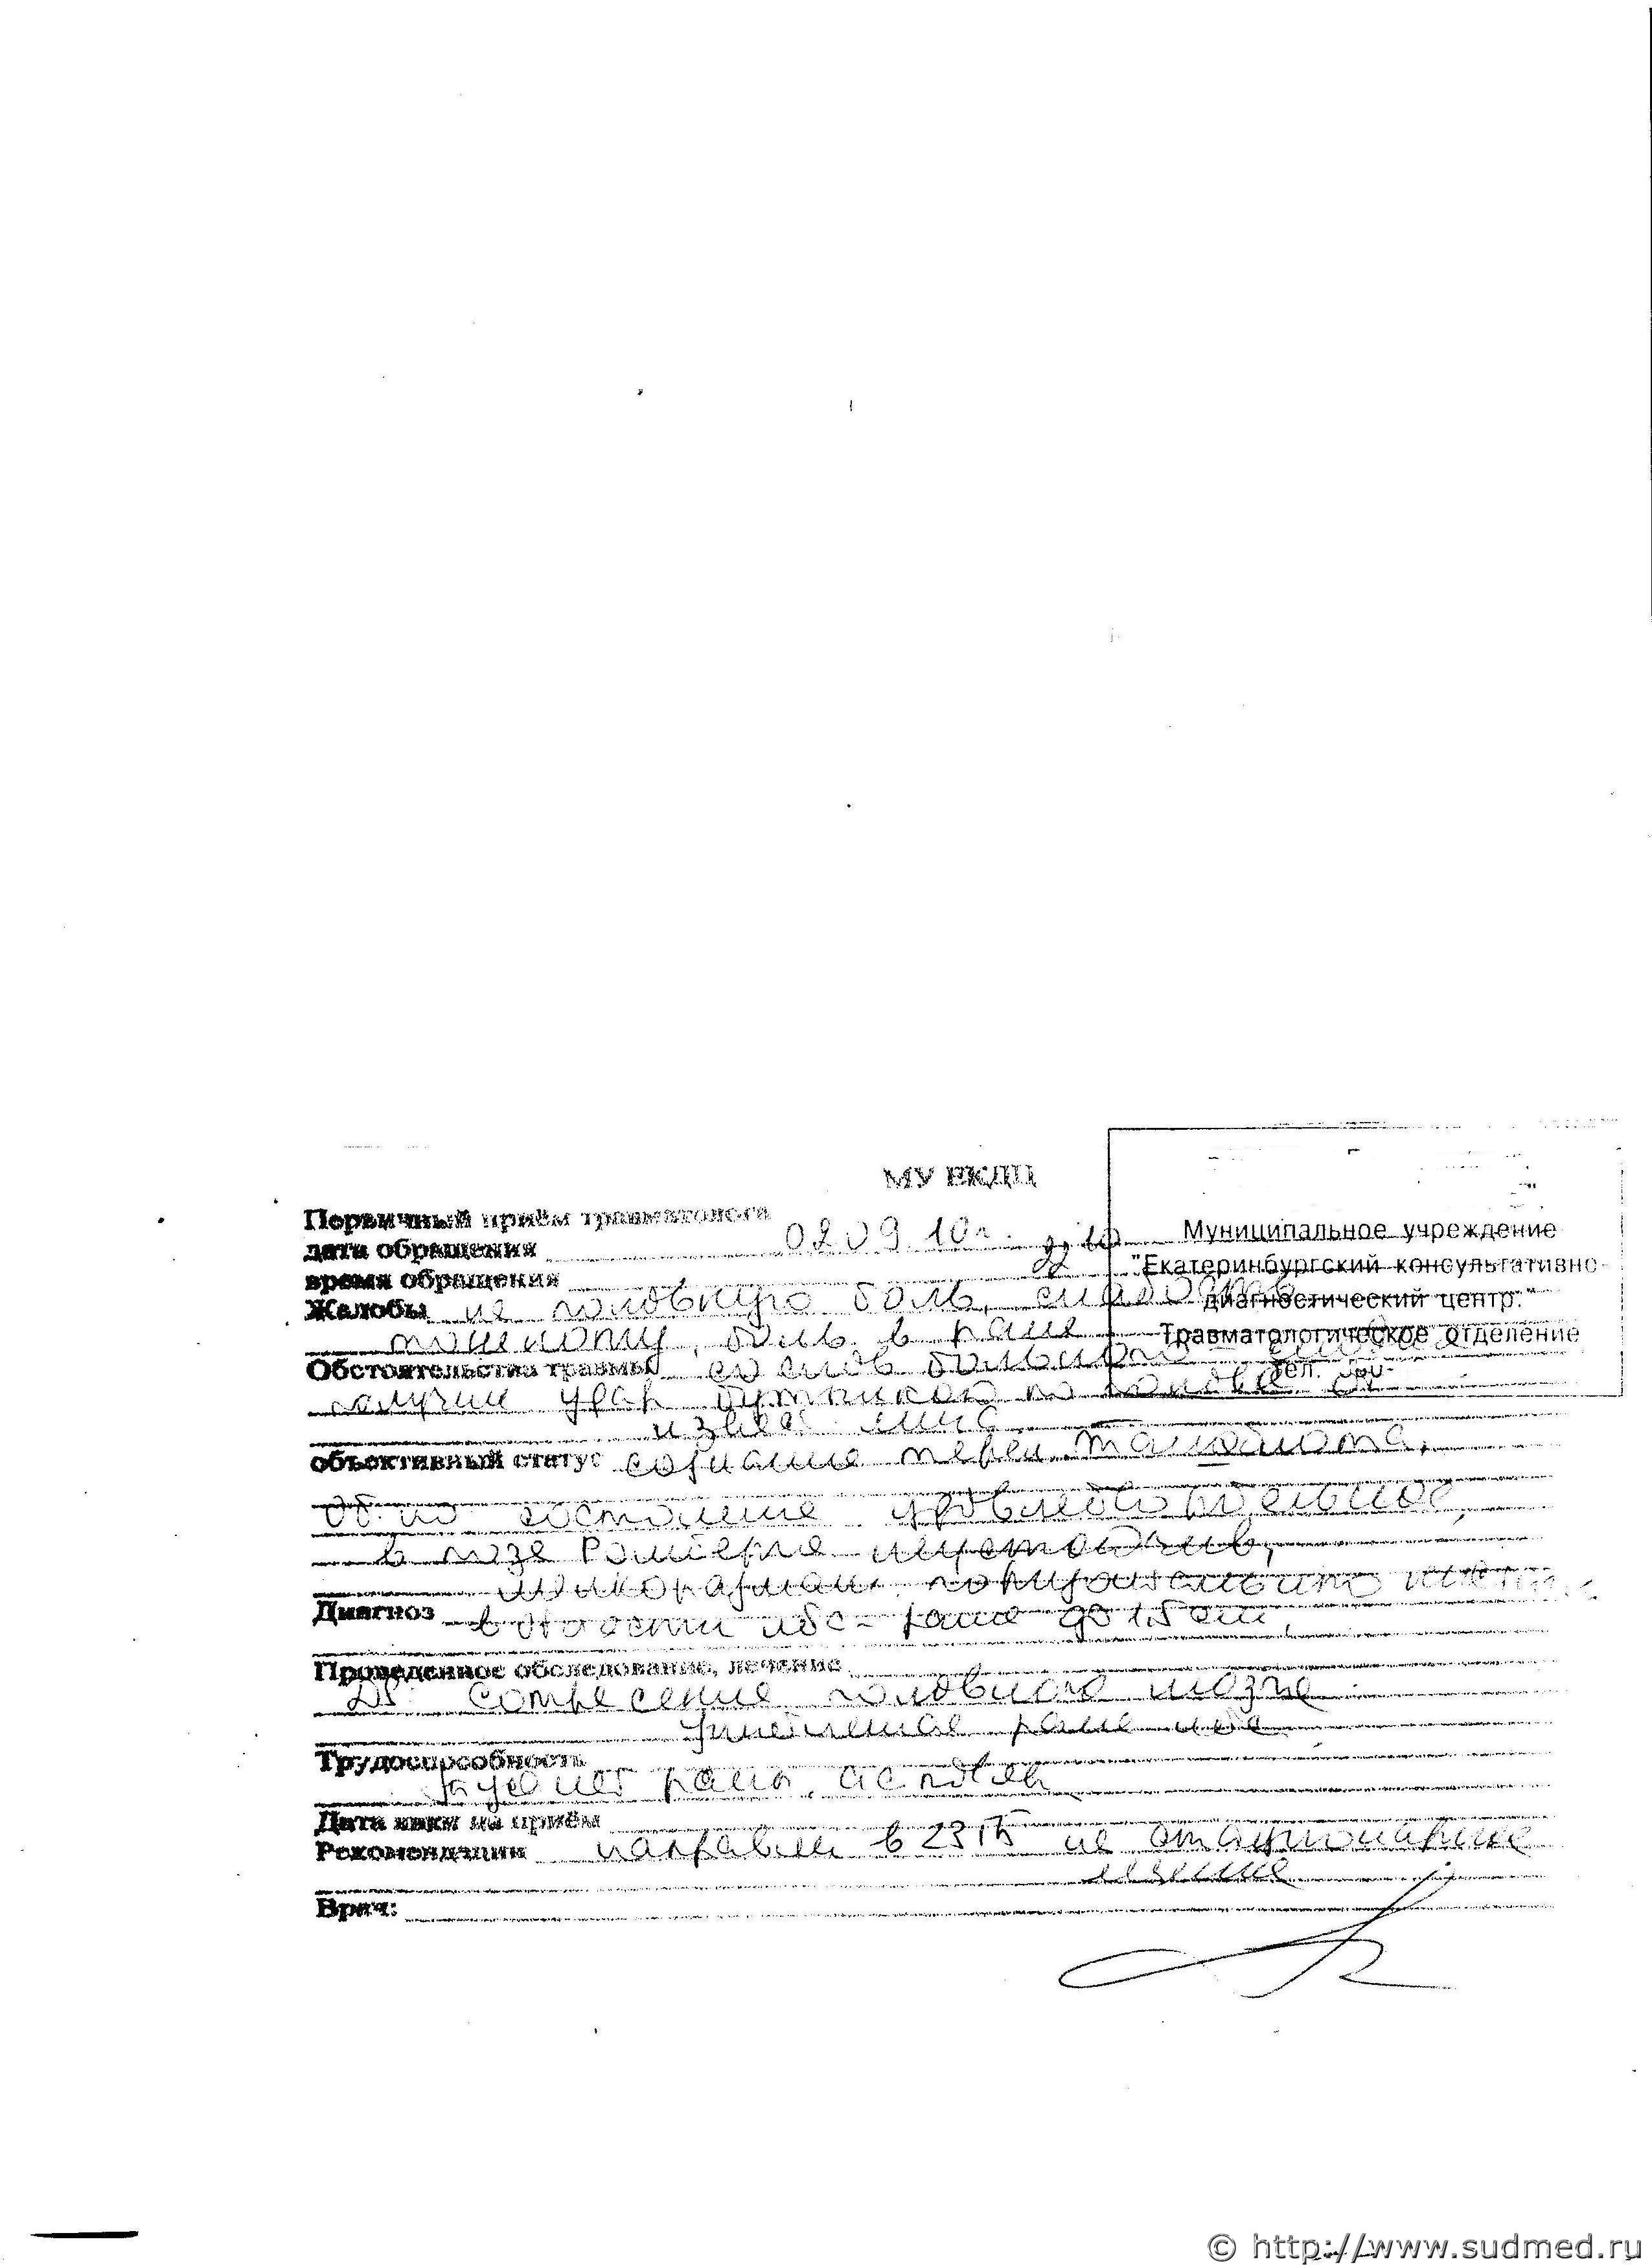 МУ ЕКДЦ
Первичный приём травматолога
дата обращения 02 09 10г.
время обращения
Муниципальное учреждение
"Екатеринбургский консультативно-
диагностический центр."
Травматологическое отделение
тел.
Жалобы на головную боль, слабость
тошноту, боль в ране
Обстоятельства травмы со слов больного
получил удар бутылкой по голове от
извест лица
объективный статус сознание терял, тошнота,
общо состояние удовлетворительное,
в позе Ромберга неустойчив,
горизонтально
Диагноз в области лба - рана до 1,5 см,
Проведенное обследование, лечение
DS Сотресение головного мозга
ушибленная рана лба
Трудоспособность
туалет раны, ас повязк
Дата явки на приём
Рекомендации направлен в 23 ГБ на стационарное
лечение
Врач:
© http://www.sudmed.ru